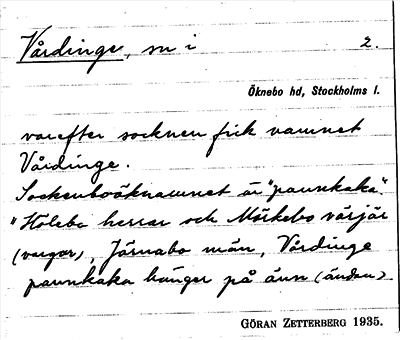 Vårdinge, sn i 2.
Öknebo hd, Stockholms l.
varefter socknen fick namnet
Vårdinge.
Sockenboöknamnet är "pannkaka".
"Hölebo herrar och Mörkebo värjär
(vargar), Järnabo män, Vårdinge
pannkaka hänger på änn (ändan).
GÖRAN ZETTERBERG 1935.